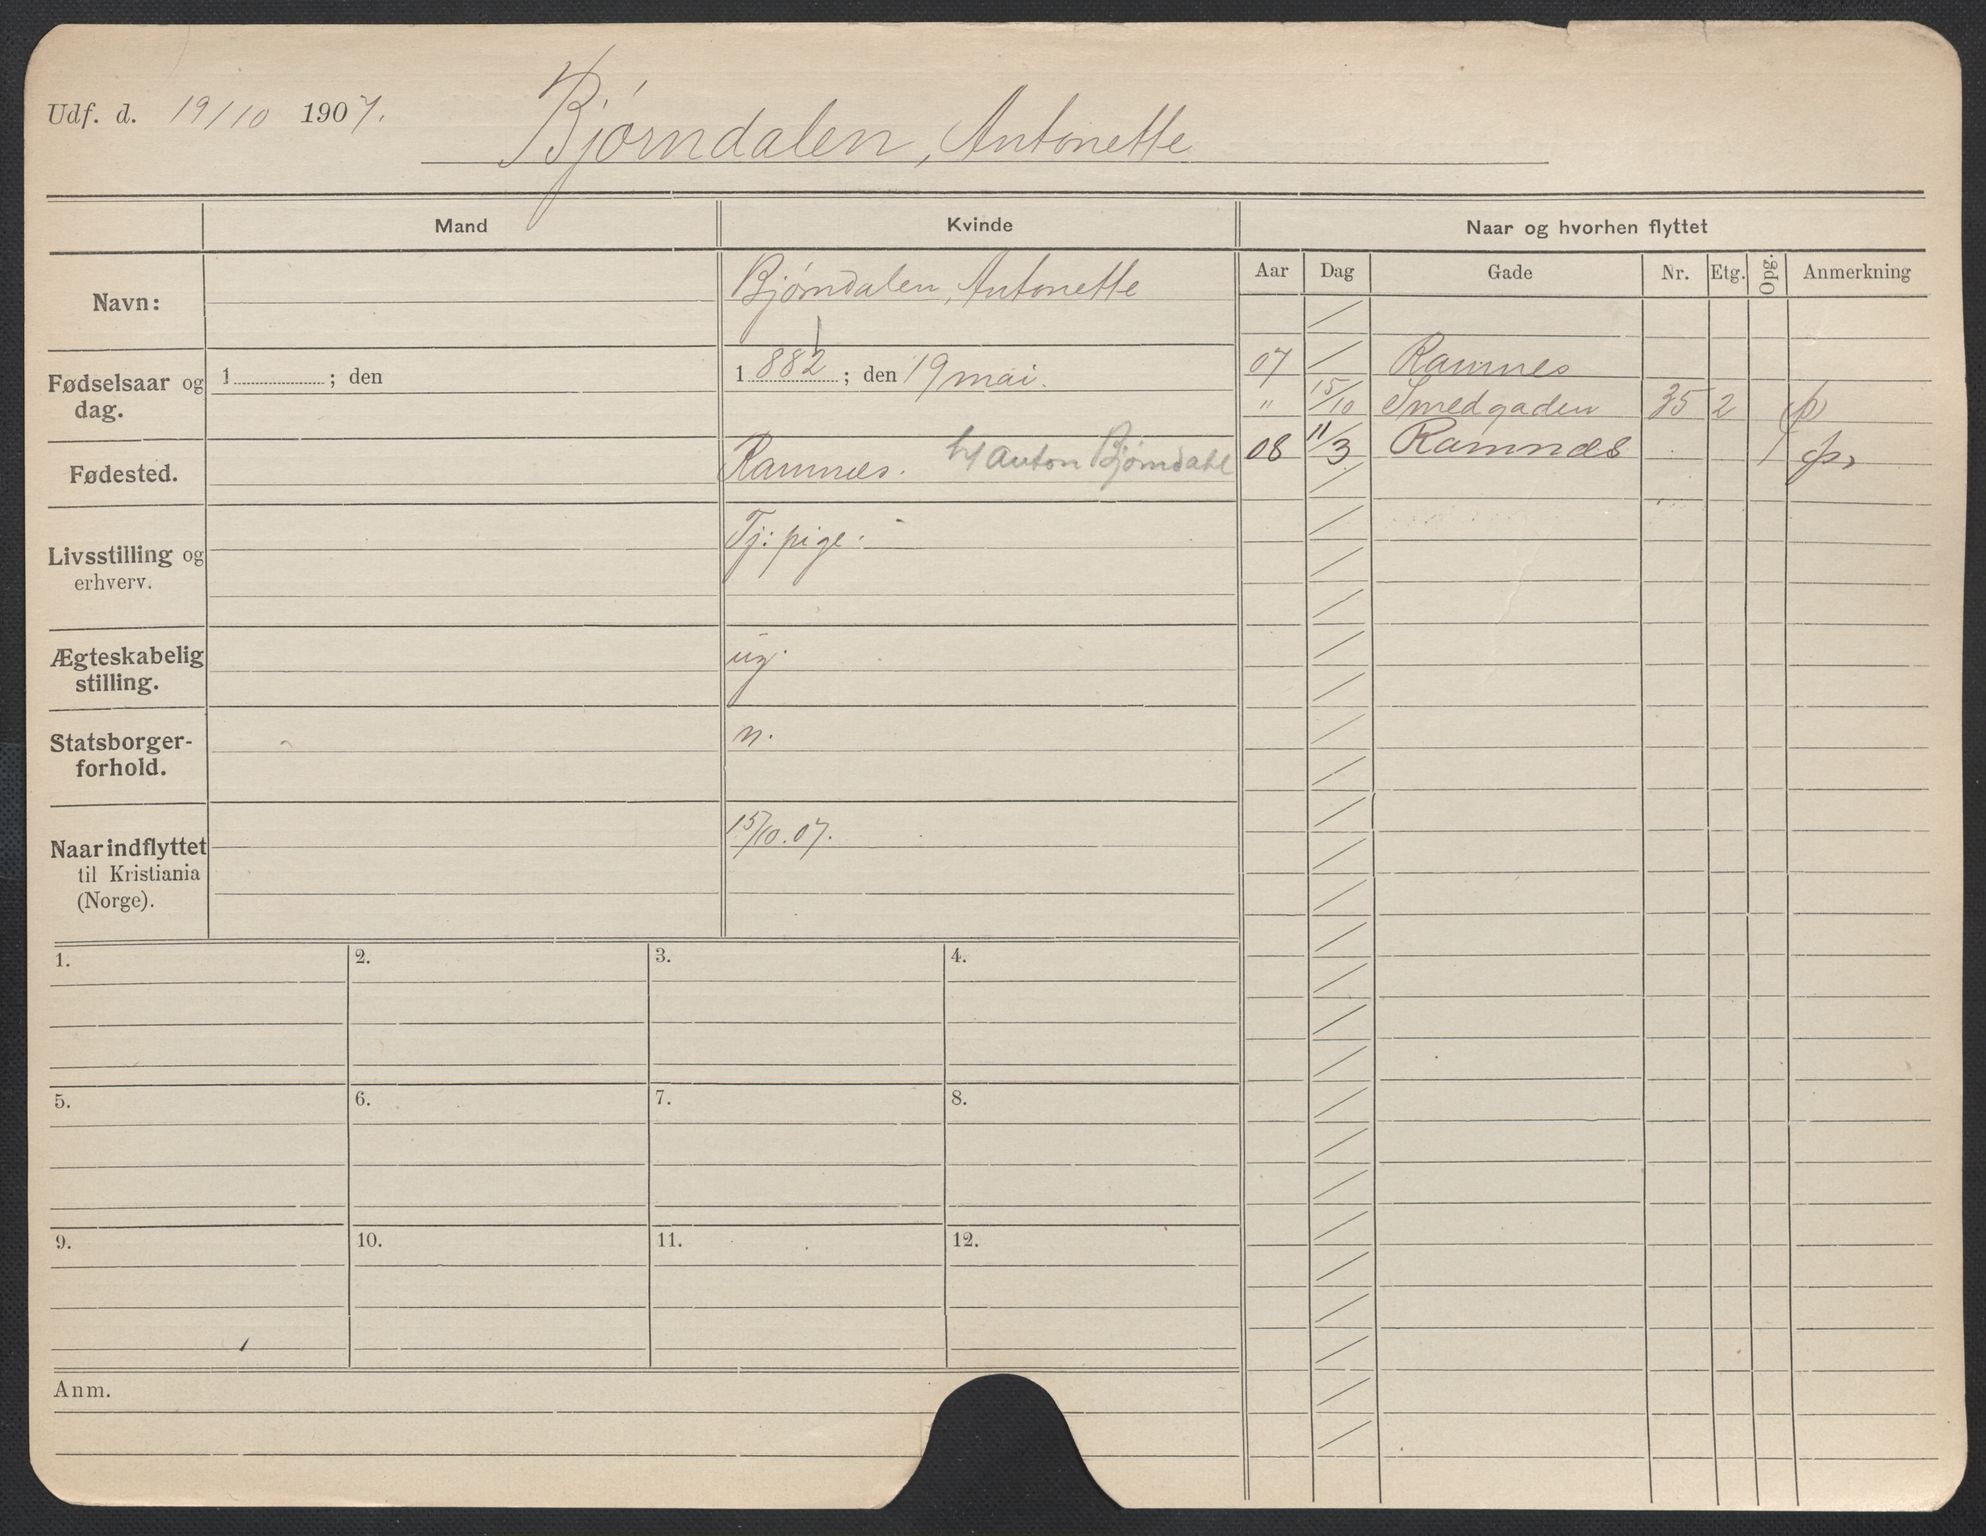 Udf. d. 19/10 1907.
Bjørndalen, Antonette
Mand
Kvinde
Naar og hvorhen flyttet
Aar Dag Gade Nr. Etg. Opg. Anmerkning
Navn:
Bjørndalen, Antonette
Fødselsaar og dag.
1 ; den
1882 ; den 19 mai.
Fødested.
Ramnes. h/ Anton Bjørndahl
Livsstilling og
erhverv.
Tj: pige.
Ægteskabelig
stilling.
ug.
Statsborger-
forhold.
n.
Naar indflyttet
til Kristiania
(Norge).
15/10.07.
07 Ramnes
" 15/10 Smedgaden 35 2
08 11/3 Ramnes
1. 2. 3. 4.
5. 6. 7. 8.
9. 10. 11. 12.
Anm.